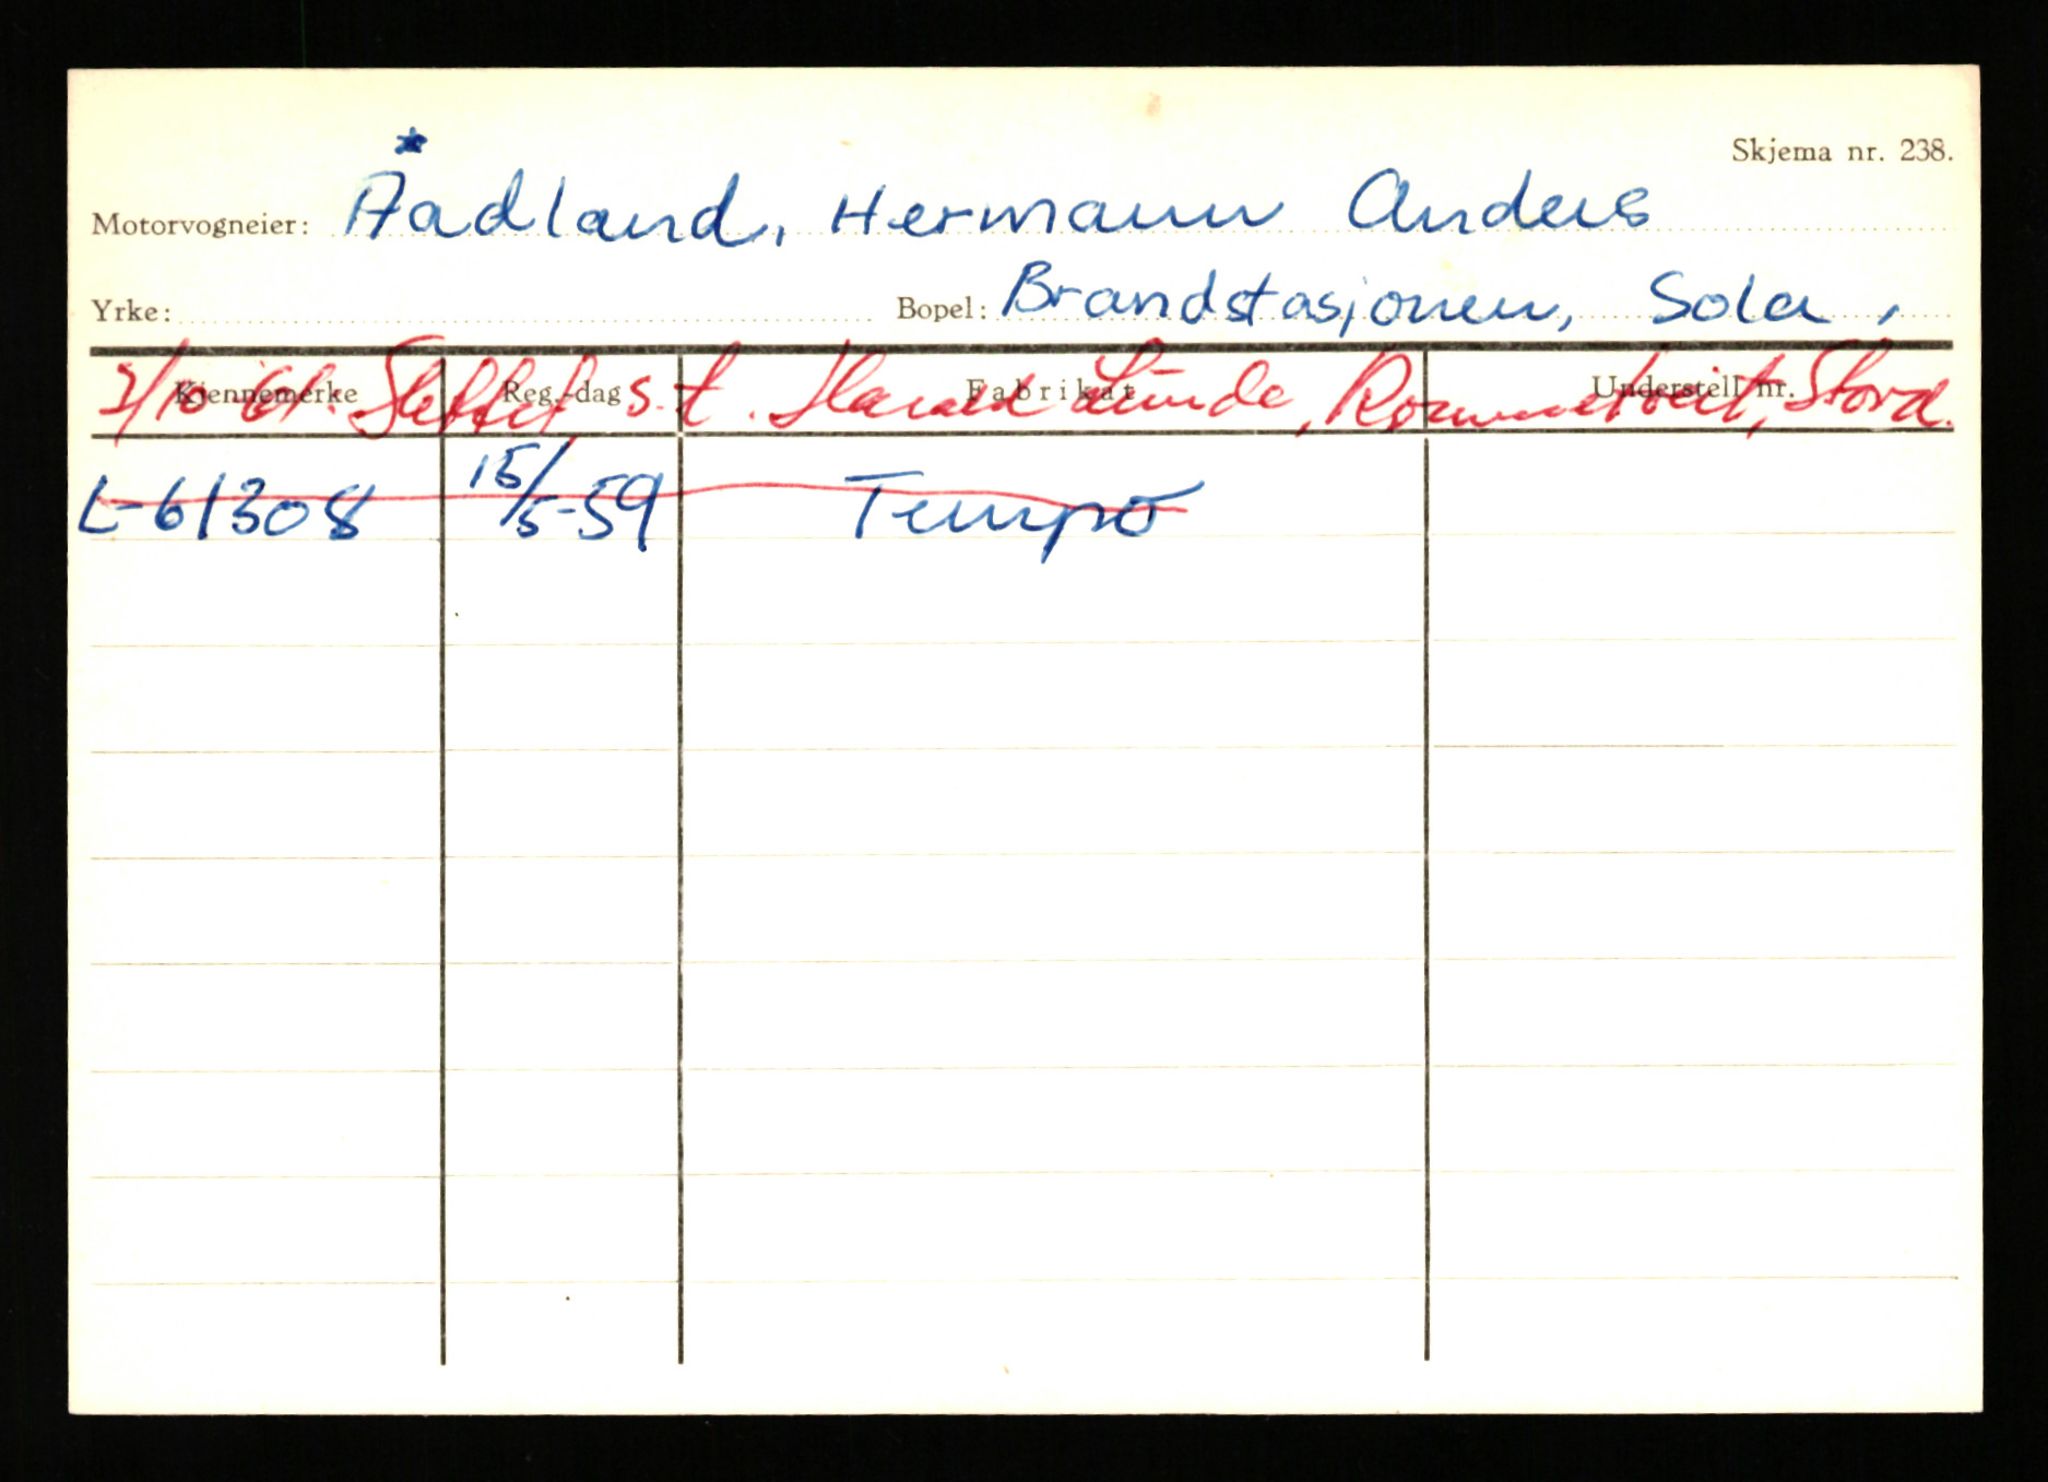 Skjema nr. 238.
Motorvogneier: Aadland, Hermann Anders
Yrke: Bopel: Brandstasjonen, Sola,
Kjennemerke Reg.-dag Fabrikat Understell nr.
/10 61. Slettet s.t. Harald Lunde, Rommetveit, Stord.
L-61308 15/5-59 Tempo